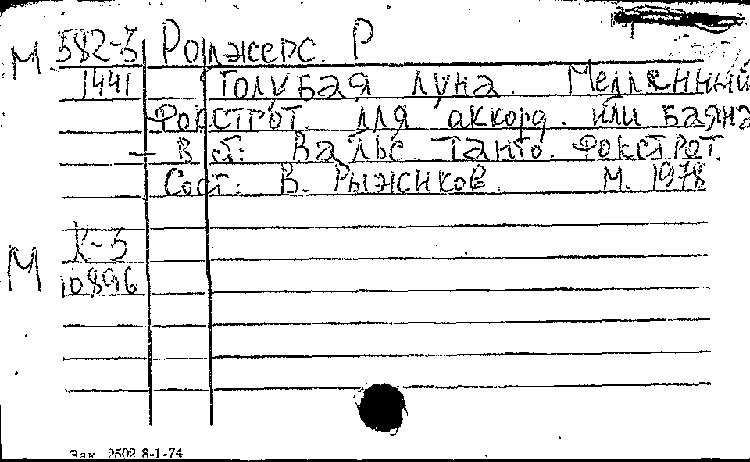 М 582-3 Роджерс. Р
1441 Голубая луна. Медленный
фокстрот для аккорд. или баяна
— В сб: Вальс. Танго. Фокстрот.
Сост: В. Рыжиков. М. 1978
М К-3
10896
Зак. 2502 8-1-74